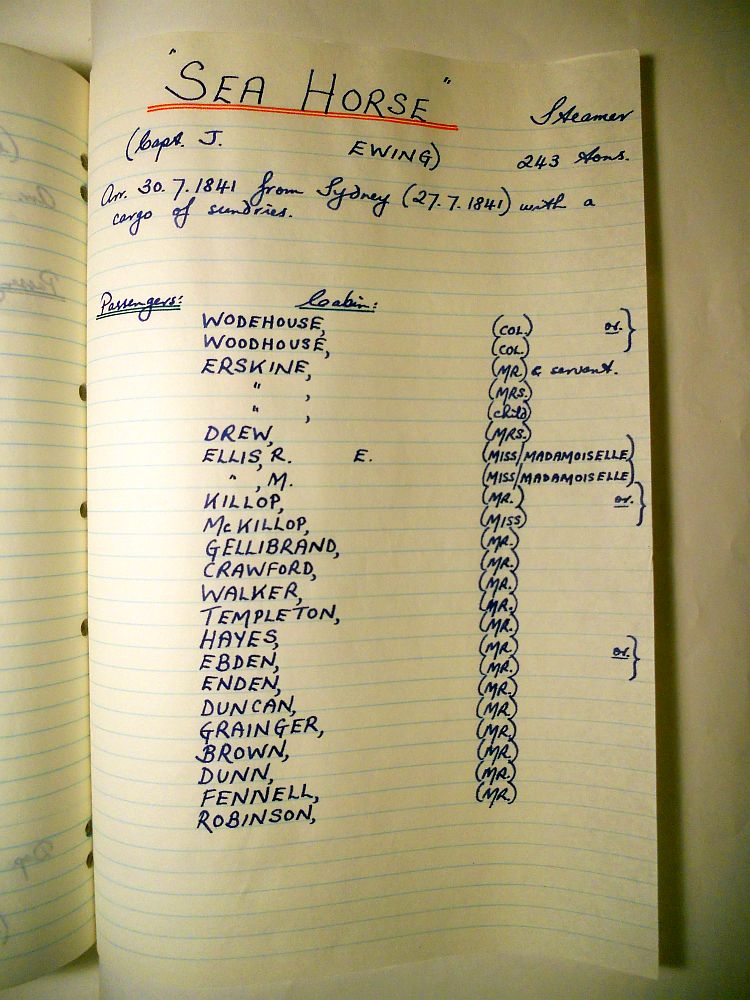 "SEA HORSE"
Steamer
(Capt. J. EWING) 243 tons.
Arr. 30.7.1841 from Sydney (27.7.1841) with a
cargo of sundries.
Passengers: Cabin:
WODEHOUSE, (COL.) or. }
WOODHOUSE, (COL.)
ERSKINE, (MR.) & servant.
" , (MRS.)
" , (child)
DREW, (MRS.)
ELLIS, R. E. (MISS/MADAMOISELLE)
" , M. (MISS/MADAMOISELLE)
KILLOP, (MR.) or. }
McKILLOP, (MISS)
GELLIBRAND, (MR.)
CRAWFORD, (MR.)
WALKER, (MR.)
TEMPLETON, (MR.)
HAYES, (MR.)
EBDEN, (MR.) or. }
ENDEN, (MR.)
DUNCAN, (MR.)
GRAINGER, (MR.)
BROWN, (MR.)
DUNN, (MR.)
FENNELL, (MR.)
ROBINSON, (MR.)